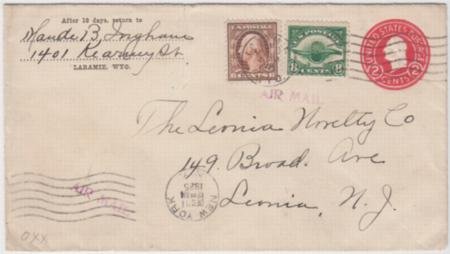 After 10 days, return to
Maude B. Ingham
1401 Kearney St.
LARAMIE, WYO.
U.S. POSTAGE
6 CENTS 6
POSTAGE
8 CENTS 8
UNITED STATES POSTAGE
2 CENTS 2
AIR MAIL
The Leonia Novelty Co
149 Broad. Ave
Leonia, N. J.
AIR MAIL
NEW YORK
1925
oxx